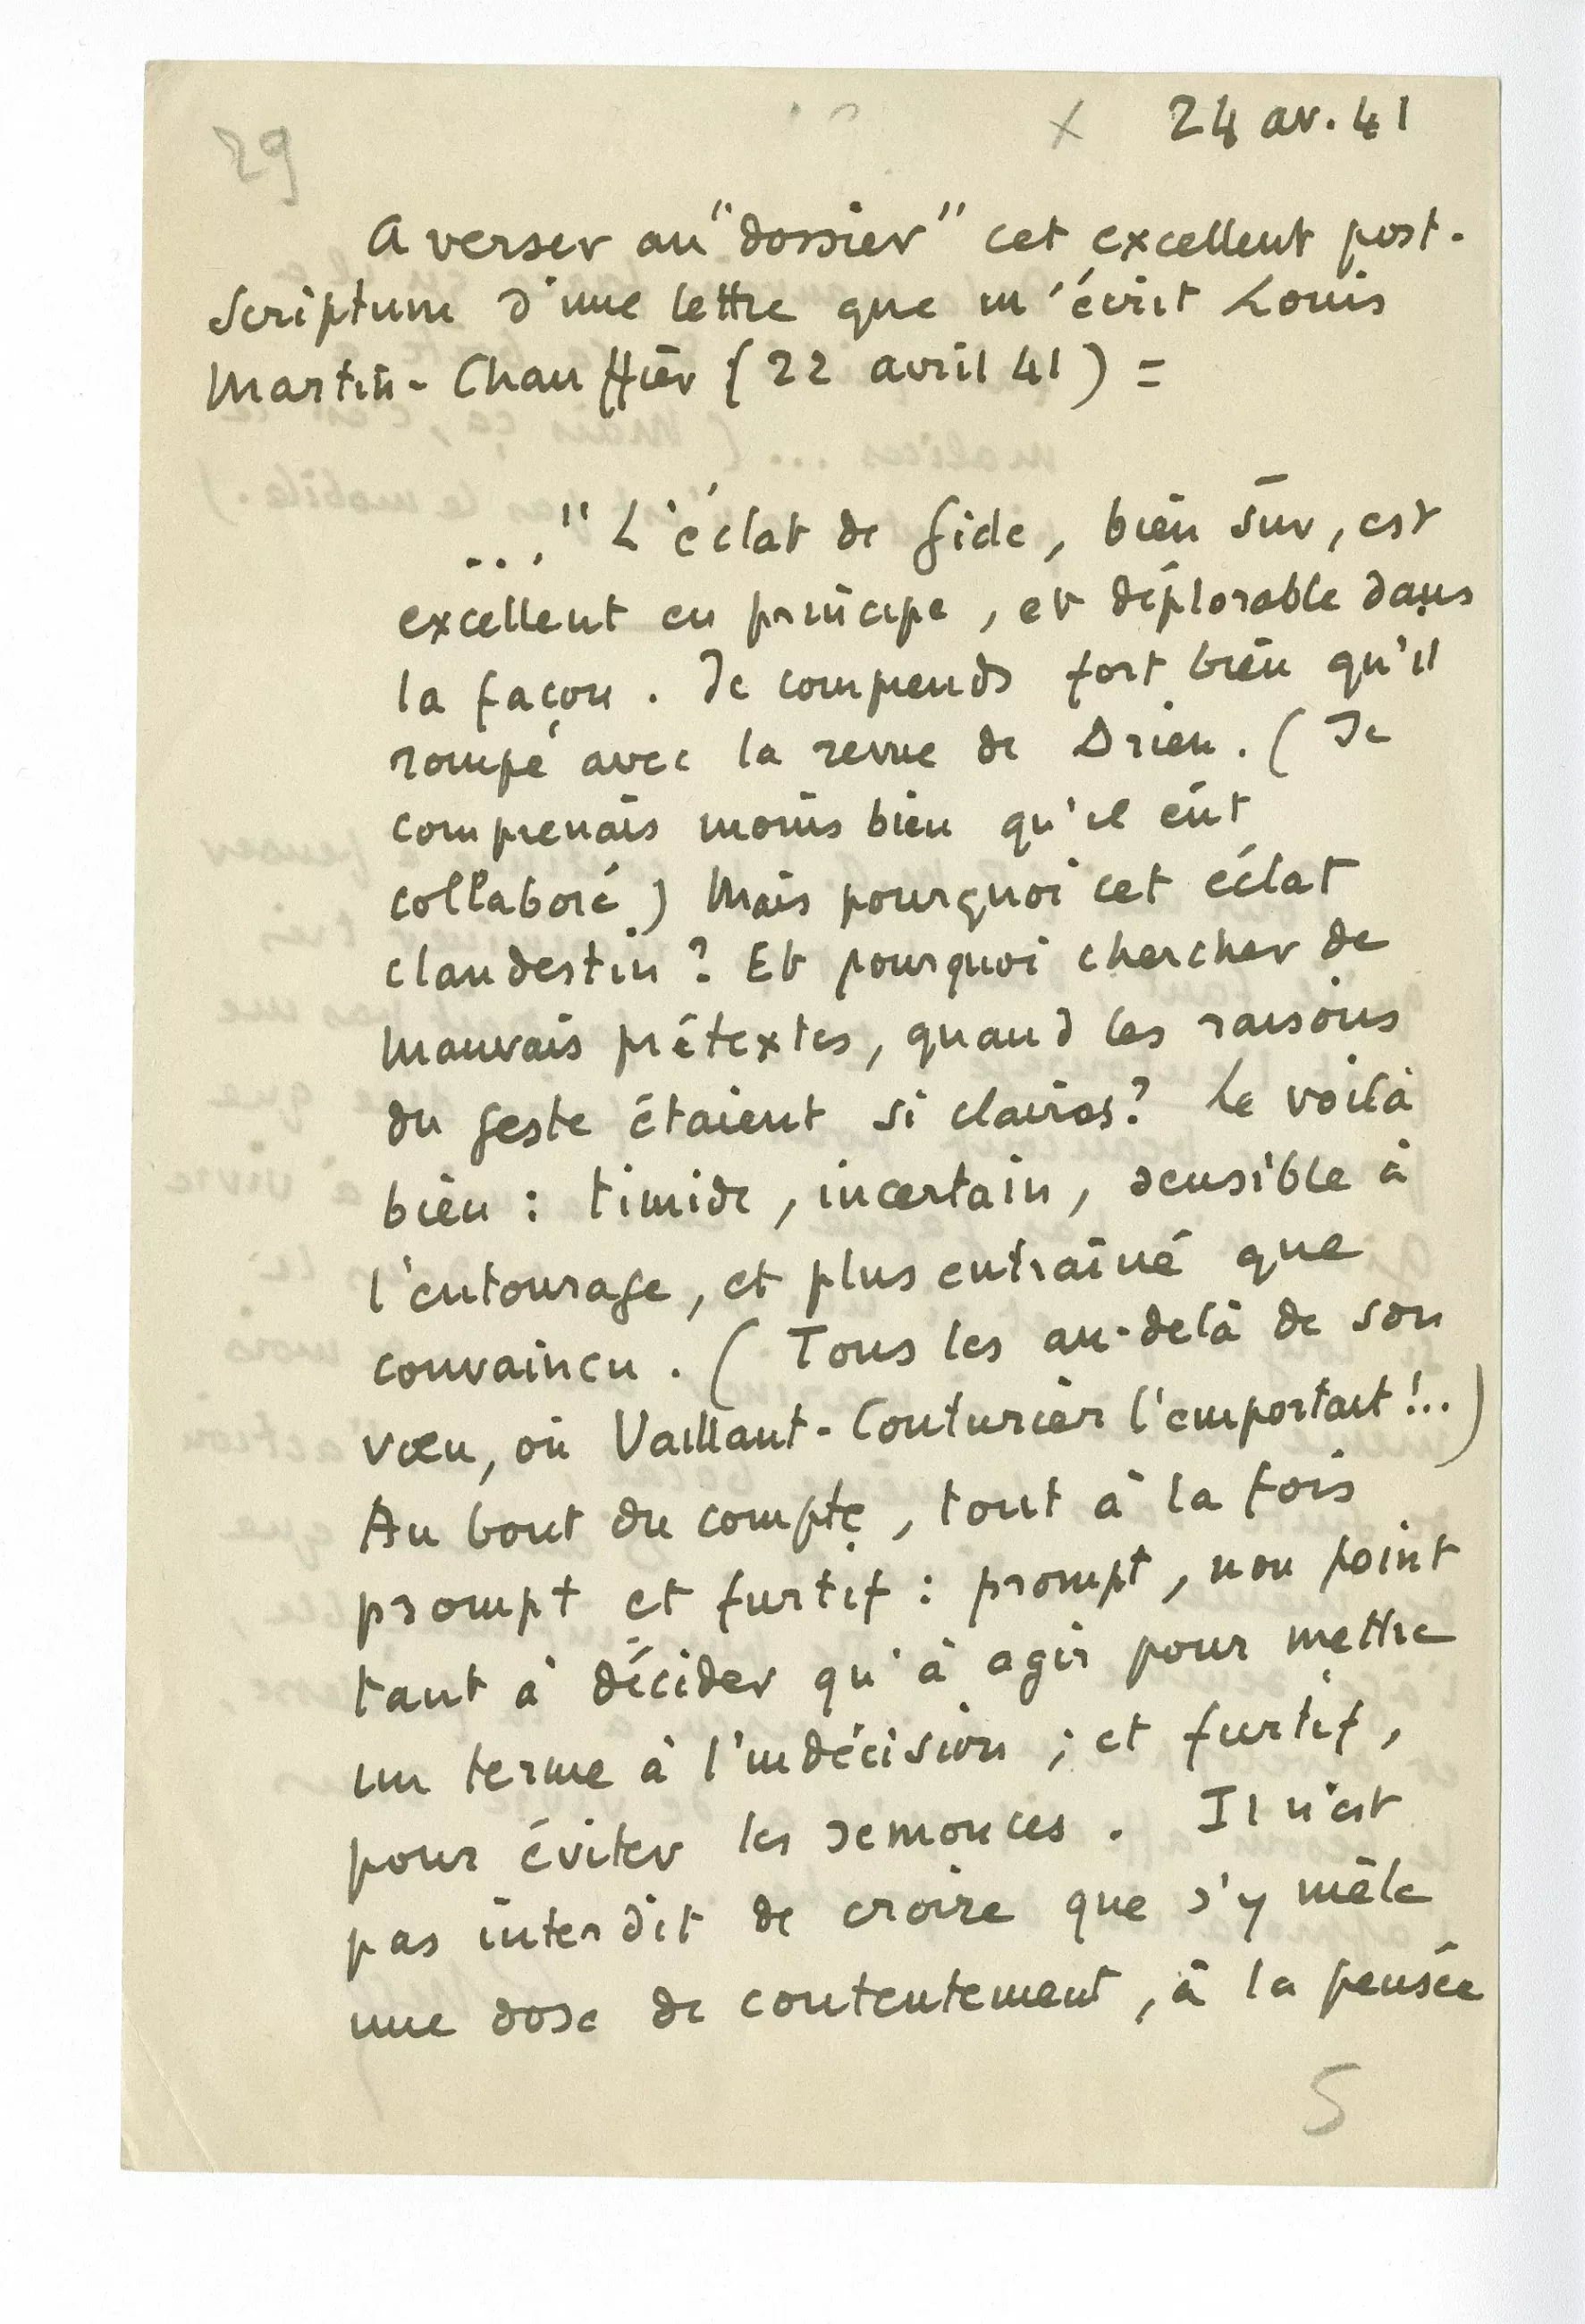 29
x 24 av. 41
A verser au "dossier" cet excellent post-
scriptum d'une lettre que m'écrit Louis
Martin-Chauffier (22 avril 41) =
..." L'éclat de Gide, bien sûr, est
excellent en principe, et déplorable dans
la façon. Je comprends fort bien qu'il
rompe avec la revue de Drieu. (Je
comprenais moins bien qu'il eût
collaboré) Mais pourquoi cet éclat
clandestin ? Et pourquoi chercher de
mauvais prétextes, quand les raisons
du geste étaient si claires ? Le voilà
bien : timide, incertain, sensible à
l'entourage, et plus entraîné que
convaincu. (Tous les au-delà de son
vœu, où Vaillant-Couturier l'emportait !..)
Au bout du compte, tout à la fois
prompt et furtif : prompt, non point
tant à décider qu'à agir pour mettre
un terme à l'indécision ; et furtif,
pour éviter les semonces. Il n'est
pas interdit de croire que s'y mêle
une dose de contentement, à la pensée
5